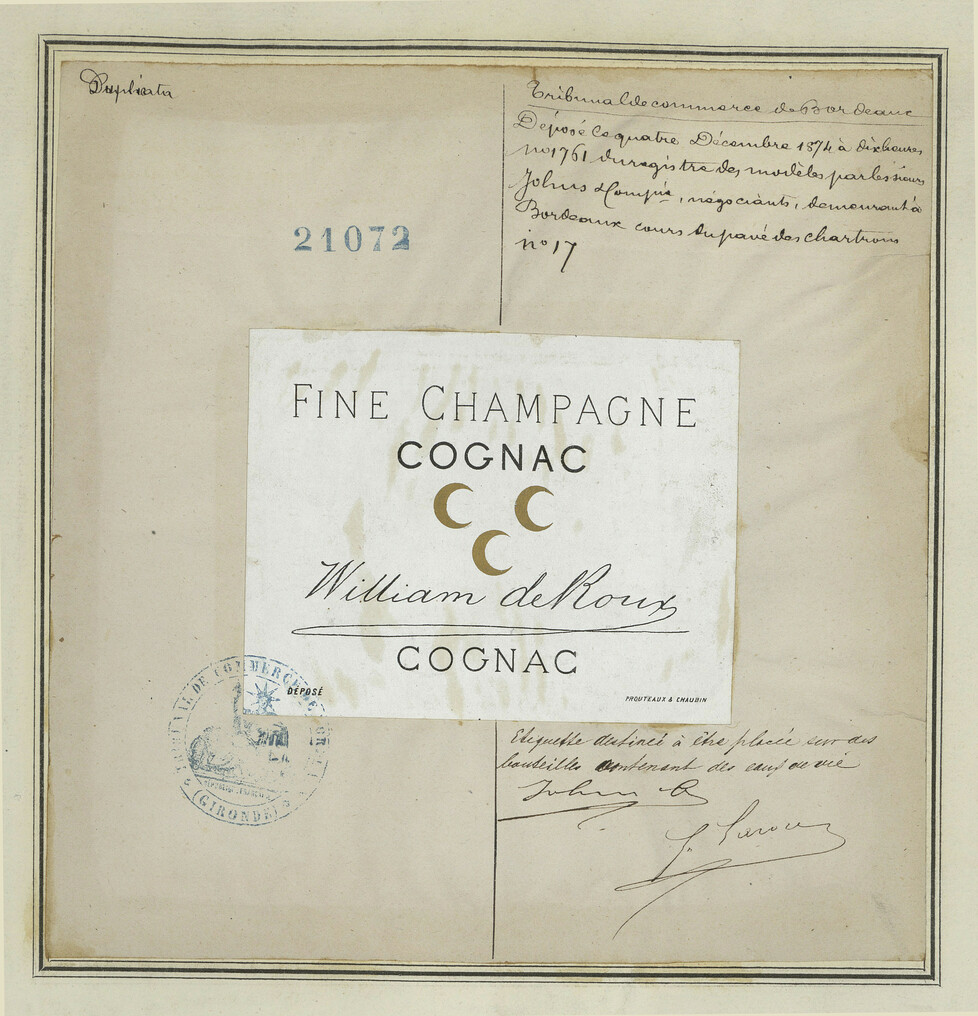 Duplicata
Tribunal de commerce de Bordeaux
Déposé le quatre Décembre 1874 à dix heures
no 1761 du registre des modèles par les sieurs
Johns & Compie, négociants, demeurant à
Bordeaux cours du pavé des chartrons
no 17
21072
FINE CHAMPAGNE
COGNAC
William de Roux
COGNAC
DÉPOSÉ
PROUTEAUX & CHAUBIN
TRIBUNAL DE COMMERCE DE
(GIRONDE)
Etiquette destinée à être placée sur des
bouteilles contenant des eaux de vie